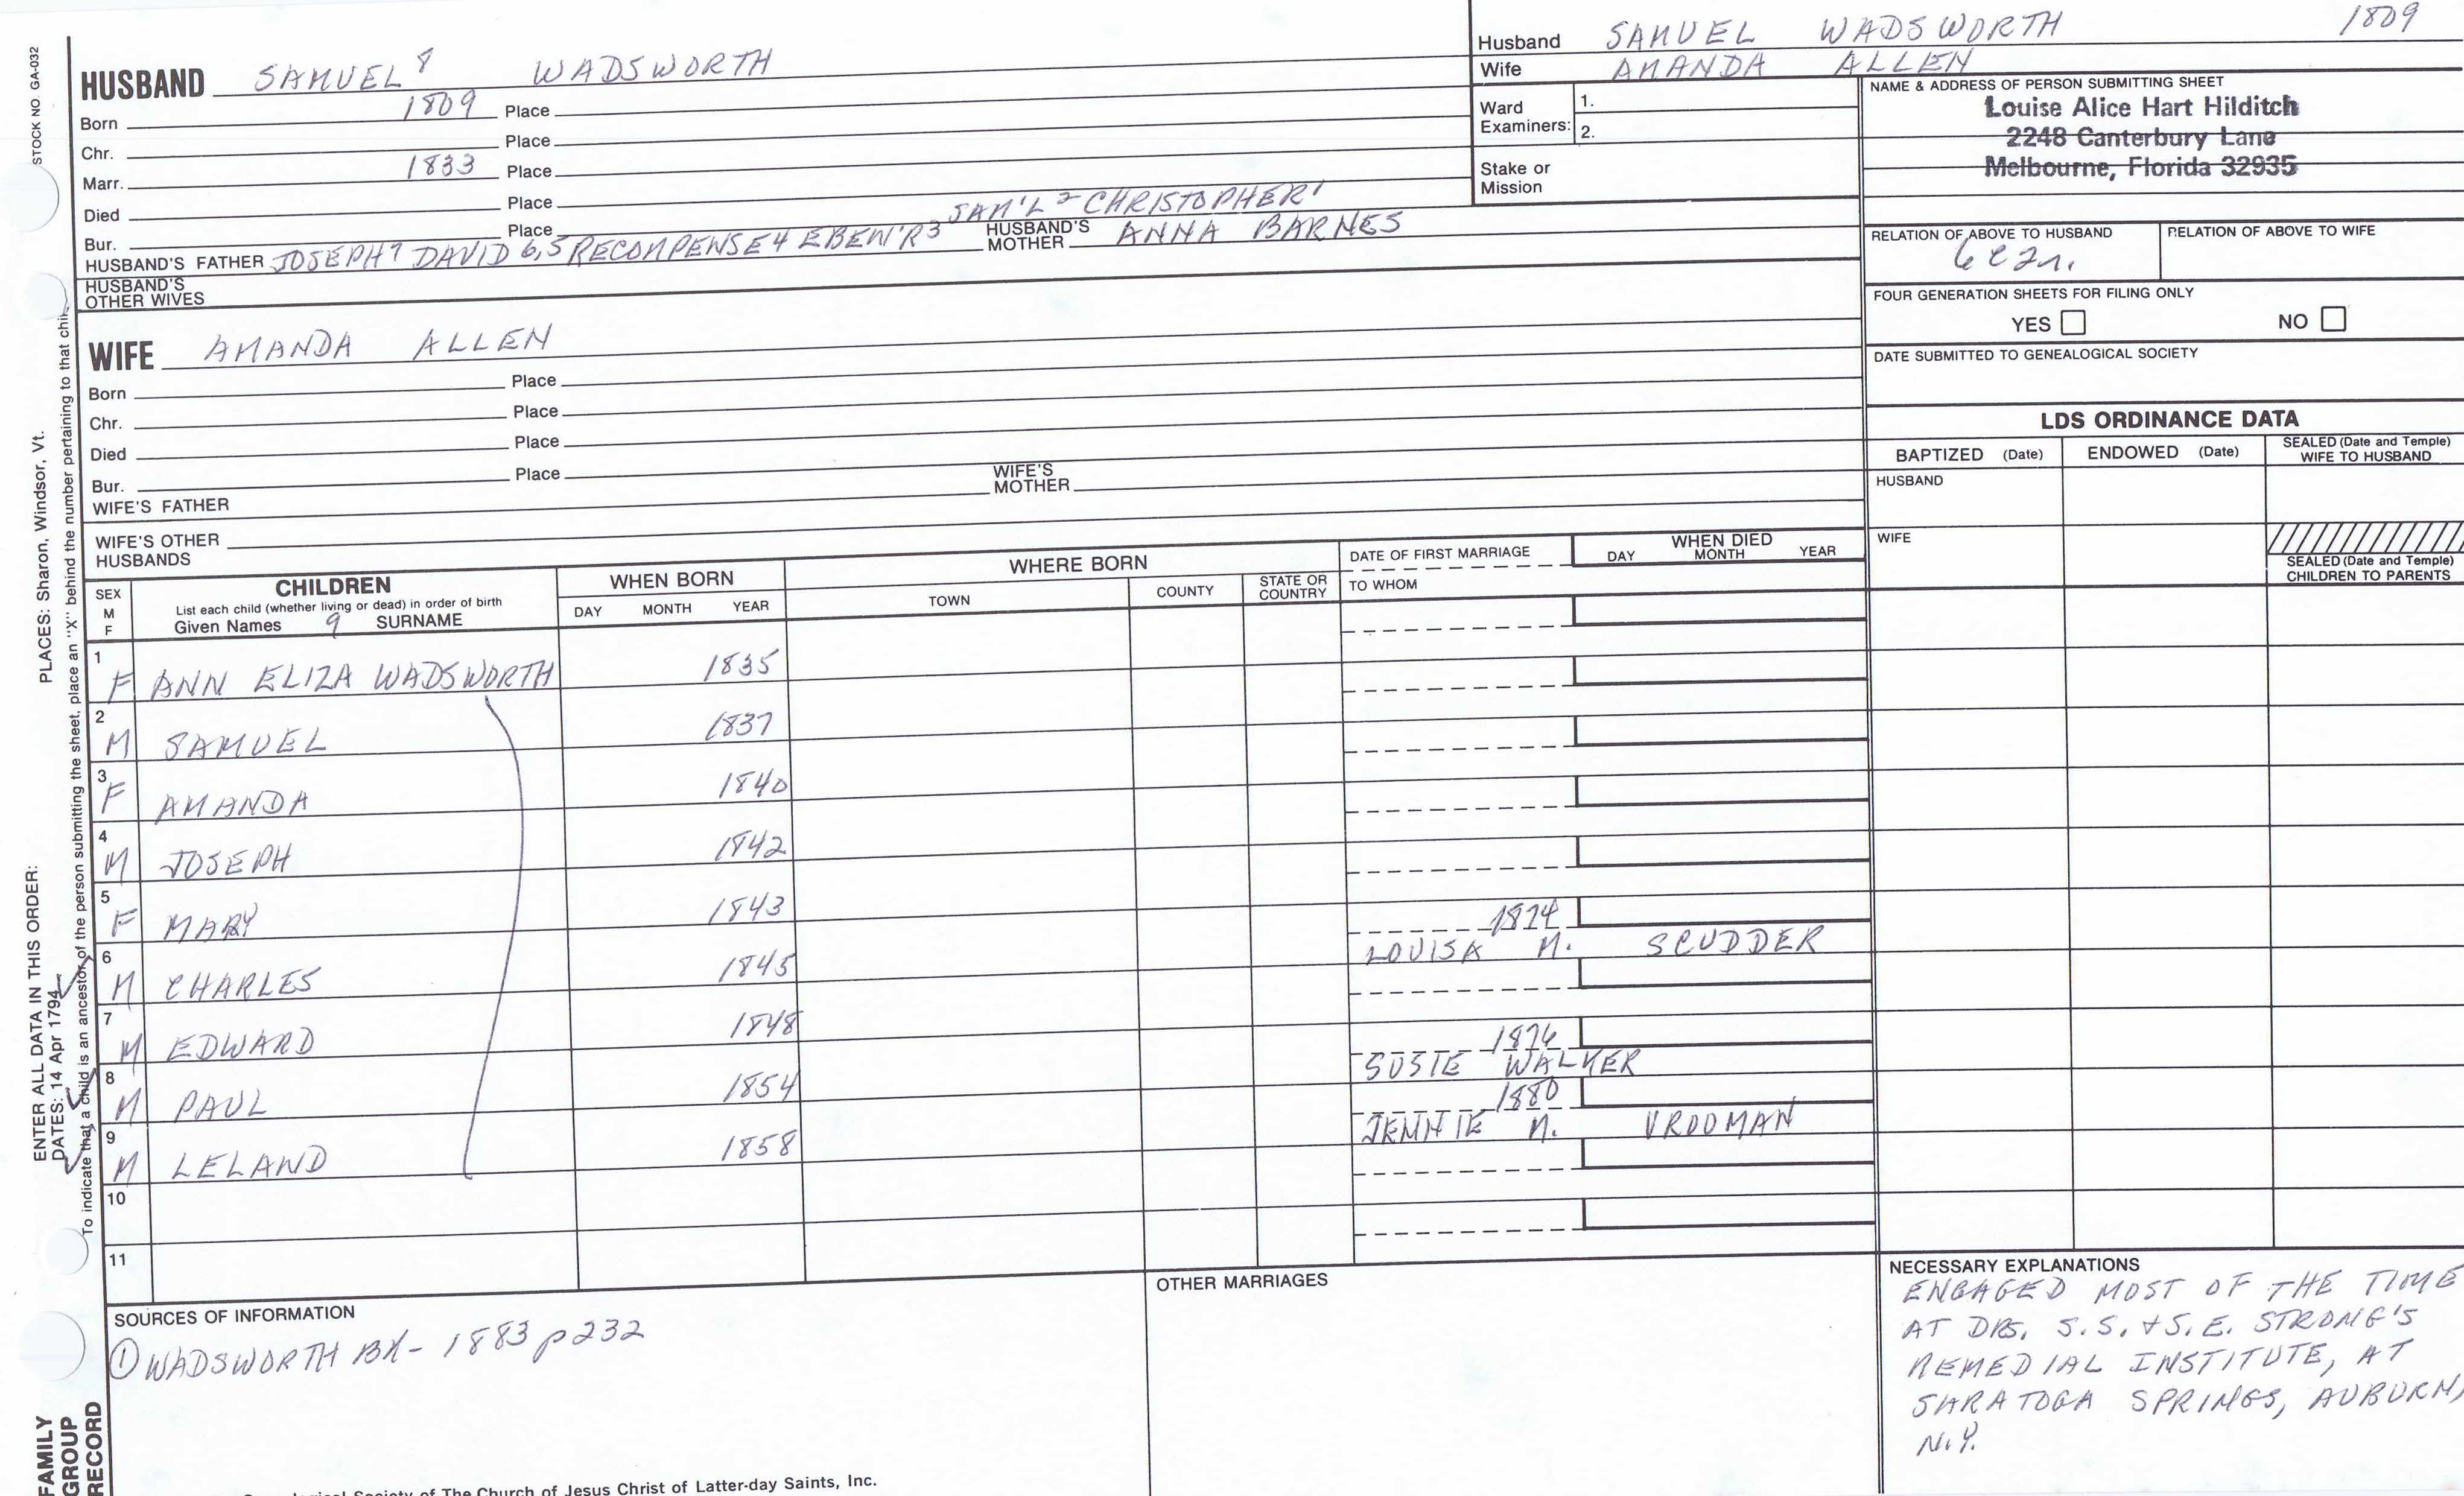 STOCK NO. GA-032
HUSBAND SAMUEL 8 WADSWORTH
Born 1809 Place
Chr. Place
Marr. 1833 Place
Died Place
Bur. Place
SAM'L 2 CHRISTOPHER 1
HUSBAND'S FATHER JOSEPH 7 DAVID 6,5 RECOMPENSE 4 EBEN'R 3 HUSBAND'S MOTHER ANNA BARNES
HUSBAND'S OTHER WIVES
WIFE AMANDA ALLEN
Born Place
Chr. Place
Died Place
Bur. Place
WIFE'S FATHER WIFE'S MOTHER
WIFE'S OTHER HUSBANDS
Husband SAMUEL WADSWORTH 1809
Wife AMANDA ALLEN
Ward Examiners: 1.
2.
Stake or Mission
NAME & ADDRESS OF PERSON SUBMITTING SHEET
Louise Alice Hart Hilditch
2248 Canterbury Lane
Melbourne, Florida 32935
RELATION OF ABOVE TO HUSBAND RELATION OF ABOVE TO WIFE
FOUR GENERATION SHEETS FOR FILING ONLY
YES NO
DATE SUBMITTED TO GENEALOGICAL SOCIETY
LDS ORDINANCE DATA
BAPTIZED (Date) ENDOWED (Date) SEALED (Date and Temple) WIFE TO HUSBAND
HUSBAND
WIFE
SEALED (Date and Temple) CHILDREN TO PARENTS
SEX M F
CHILDREN
List each child (whether living or dead) in order of birth
Given Names 9 SURNAME
WHEN BORN
DAY MONTH YEAR
WHERE BORN
TOWN COUNTY STATE OR COUNTRY
DATE OF FIRST MARRIAGE
TO WHOM
WHEN DIED
DAY MONTH YEAR
1 F ANN ELIZA WADSWORTH 1835
2 M SAMUEL 1837
3 F AMANDA 1840
4 M JOSEPH 1842
5 F MARY 1843
6 M CHARLES 1845 1874 LOUISA M. SCUDDER
7 M EDWARD 1848
8 M PAUL 1854 1876 SUSIE WALKER
9 M LELAND 1858 1880 JENNIE M. VROOMAN
10
11
SOURCES OF INFORMATION
① WADSWORTH BK - 1883 p 232
OTHER MARRIAGES
NECESSARY EXPLANATIONS
ENGAGED MOST OF THE TIME
AT DRS. S.S. + S.E. STRONG'S
REMEDIAL INSTITUTE, AT
SARATOGA SPRINGS, AUBURN,
N.Y.
ENTER ALL DATA IN THIS ORDER: PLACES: Sharon, Windsor, Vt.
DATES: 14 Apr 1794
To indicate that a child is an ancestor of the person submitting the sheet, place an "X" behind the number pertaining to that
FAMILY GROUP RECORD
Society of The Church of Jesus Christ of Latter-day Saints, Inc.